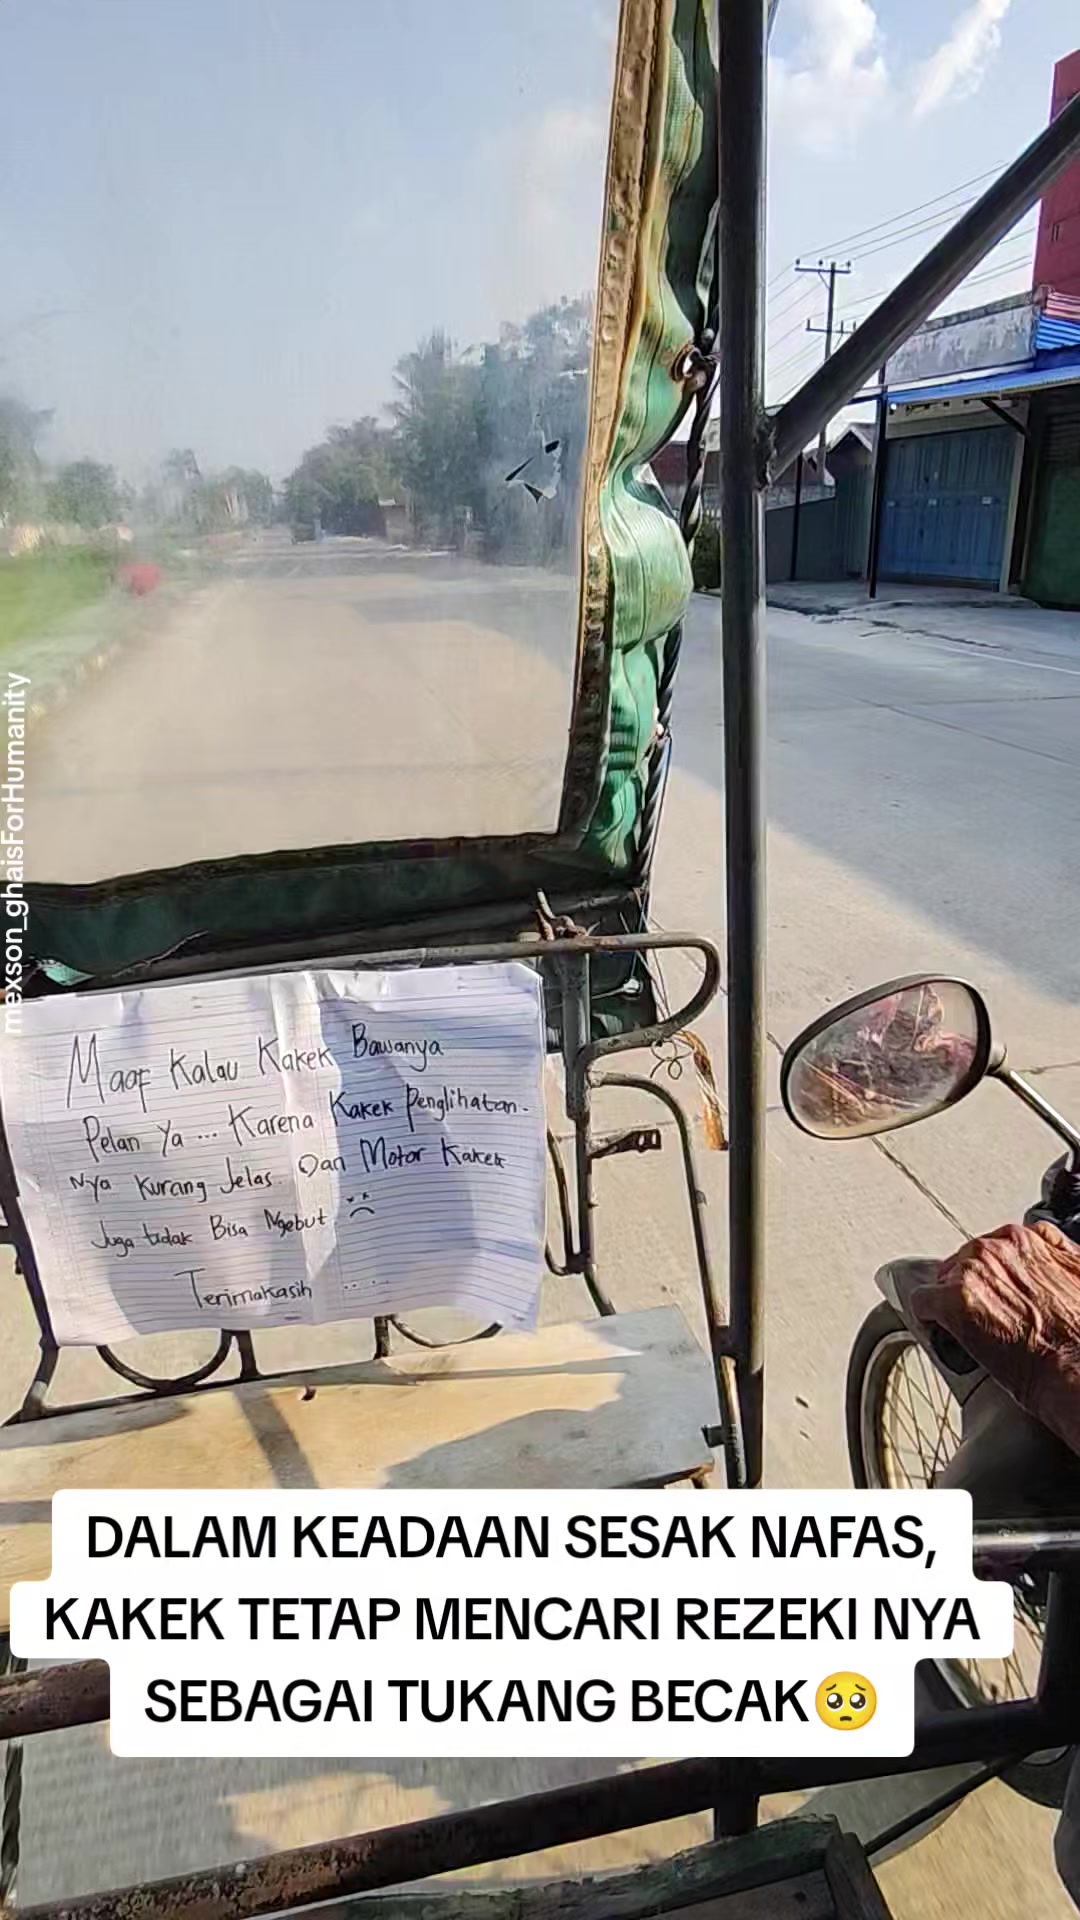 mexson_ghaisForHumanity
Maaf Kalau Kakek Bawanya
Pelan Ya ... Karena Kakek Penglihatan-
Nya Kurang Jelas. Dan Motor Kakek
Juga tidak Bisa Ngebut
Terimakasih .....
DALAM KEADAAN SESAK NAFAS,
KAKEK TETAP MENCARI REZEKI NYA
SEBAGAI TUKANG BECAK🥺